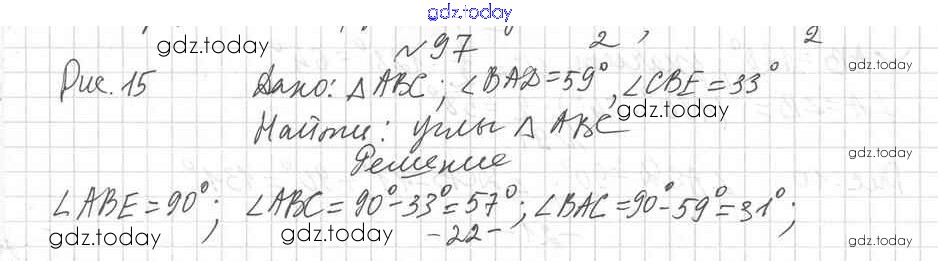 gdz.today
gdz.today №97 2 2
Рис. 15 Дано: △ABC; ∠BAD=59°, ∠CBE=33° gdz.today
gdz.today
Найти: углы △ABC
Решение gdz.today
∠ABE=90°; ∠ABC=90°-33°=57°; ∠BAC=90°-59°=31°;
gdz.today gdz.today -22- gdz.today